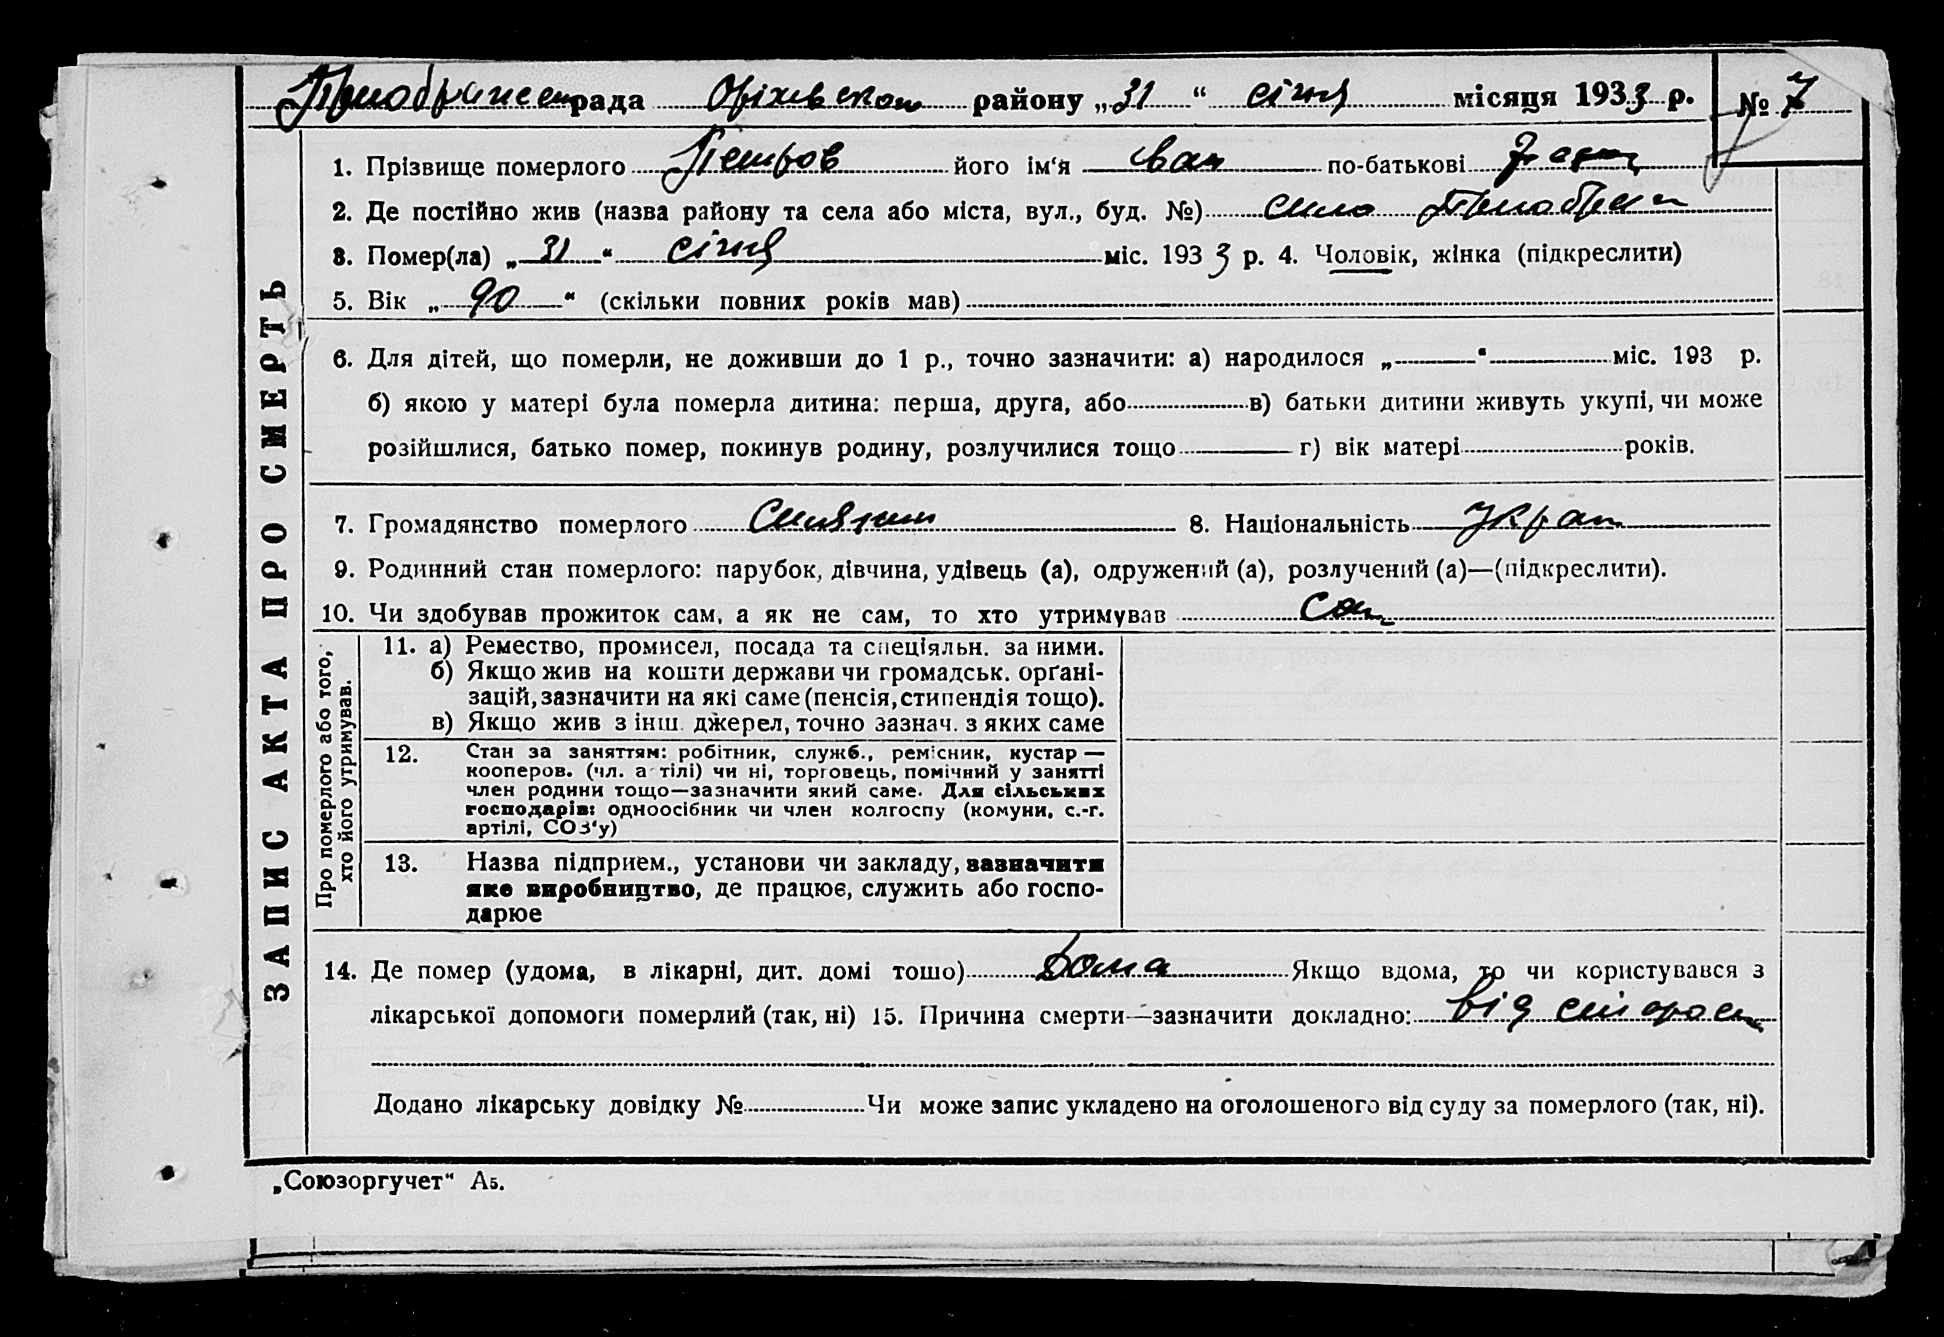 рада Оріхівськом району „31“ січня місяця 1933 р. № 7
ЗАПИС АКТА ПРО СМЕРТЬ
1. Прізвище померлого Петров його ім‘я Іван по-батькові
2. Де постійно жив (назва району та села або міста, вул., буд. №) село
3. Помер(ла) „31“ січня міс. 1933 р. 4. Чоловік, жінка (підкреслити)
5. Вік „90“ (скільки повних років мав)
6. Для дітей, що померли, не доживши до 1 р., точно зазначити: а) народилося „ “ міс. 193 р.
б) якою у матері була померла дитина: перша, друга, або в) батьки дитини живуть укупі, чи може
розійшлися, батько помер, покинув родину, розлучилися тощо г) вік матері років.
7. Громадянство померлого 8. Національність Украй
9. Родинний стан померлого: парубок, дівчина, удівець (а), одружений (а), розлучений (а)—(підкреслити).
10. Чи здобував прожиток сам, а як не сам, то хто утримував Сам
Про померлого або того,
хто його утримував.
11. а) Ремество, промисел, посада та спеціяльн. за ними.
б) Якщо жив на кошти держави чи громадськ. орґані-
зацій, зазначити на які саме (пенсія, стипендія тощо).
в) Якщо жив з інш. джерел, точно зазнач. з яких саме
12. Стан за заняттям: робітник, служб., ремісник, кустар —
кооперов. (чл. артілі) чи ні, торговець, помічний у занятті
член родини тощо—зазначити який саме. Для сільських
господарів: одноосібник чи член колгоспу (комуни, с.-г.
артілі, СОЗ‘у)
13. Назва підприєм., установи чи закладу, зазначити
яке виробництво, де працює, служить або госпо-
дарює
14. Де помер (удома, в лікарні, дит. домі тошо) Дома Якщо вдома, то чи користувався з
лікарської допомоги померлий (так, ні) 15. Причина смерти—зазначити докладно: від старост
Додано лікарську довідку № Чи може запис укладено на оголошеного від суду за померлого (так, ні).
„Союзоргучет“ А5.